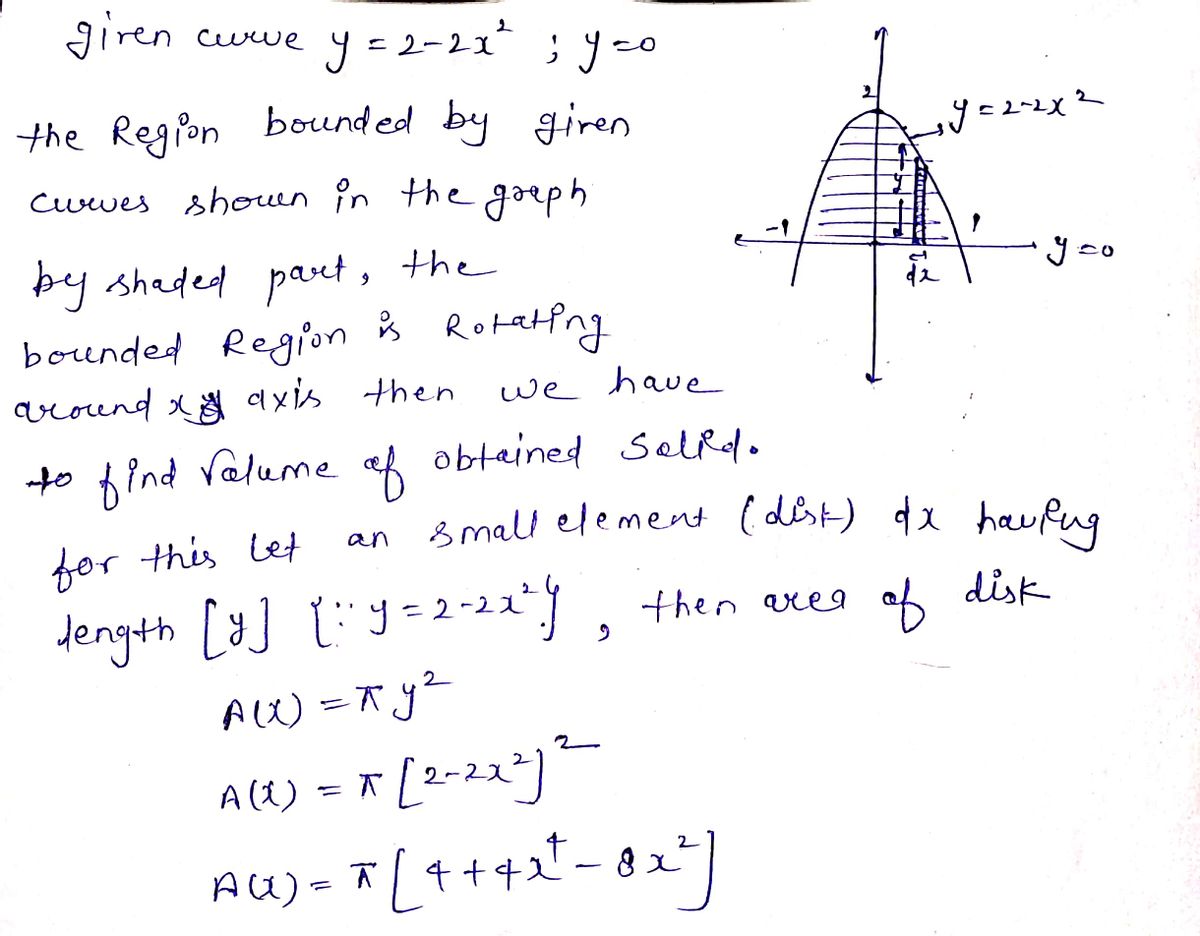 given curve y = 2-2x² ; y=0
the Region bounded by given
curves shown in the graph
by shaded part, the
bounded Region is Rotating
around x axis then we have
to find Volume of obtained Solid.
for this let an small element (disk) dx having
length [y] {∵ y = 2-2x²}, then area of disk
A(x) = π y²
A(x) = π [2-2x²]²
A(x) = π [4+4x⁴-8x²]
2
y = 2-2x²
y
-1
1
y=0
dx